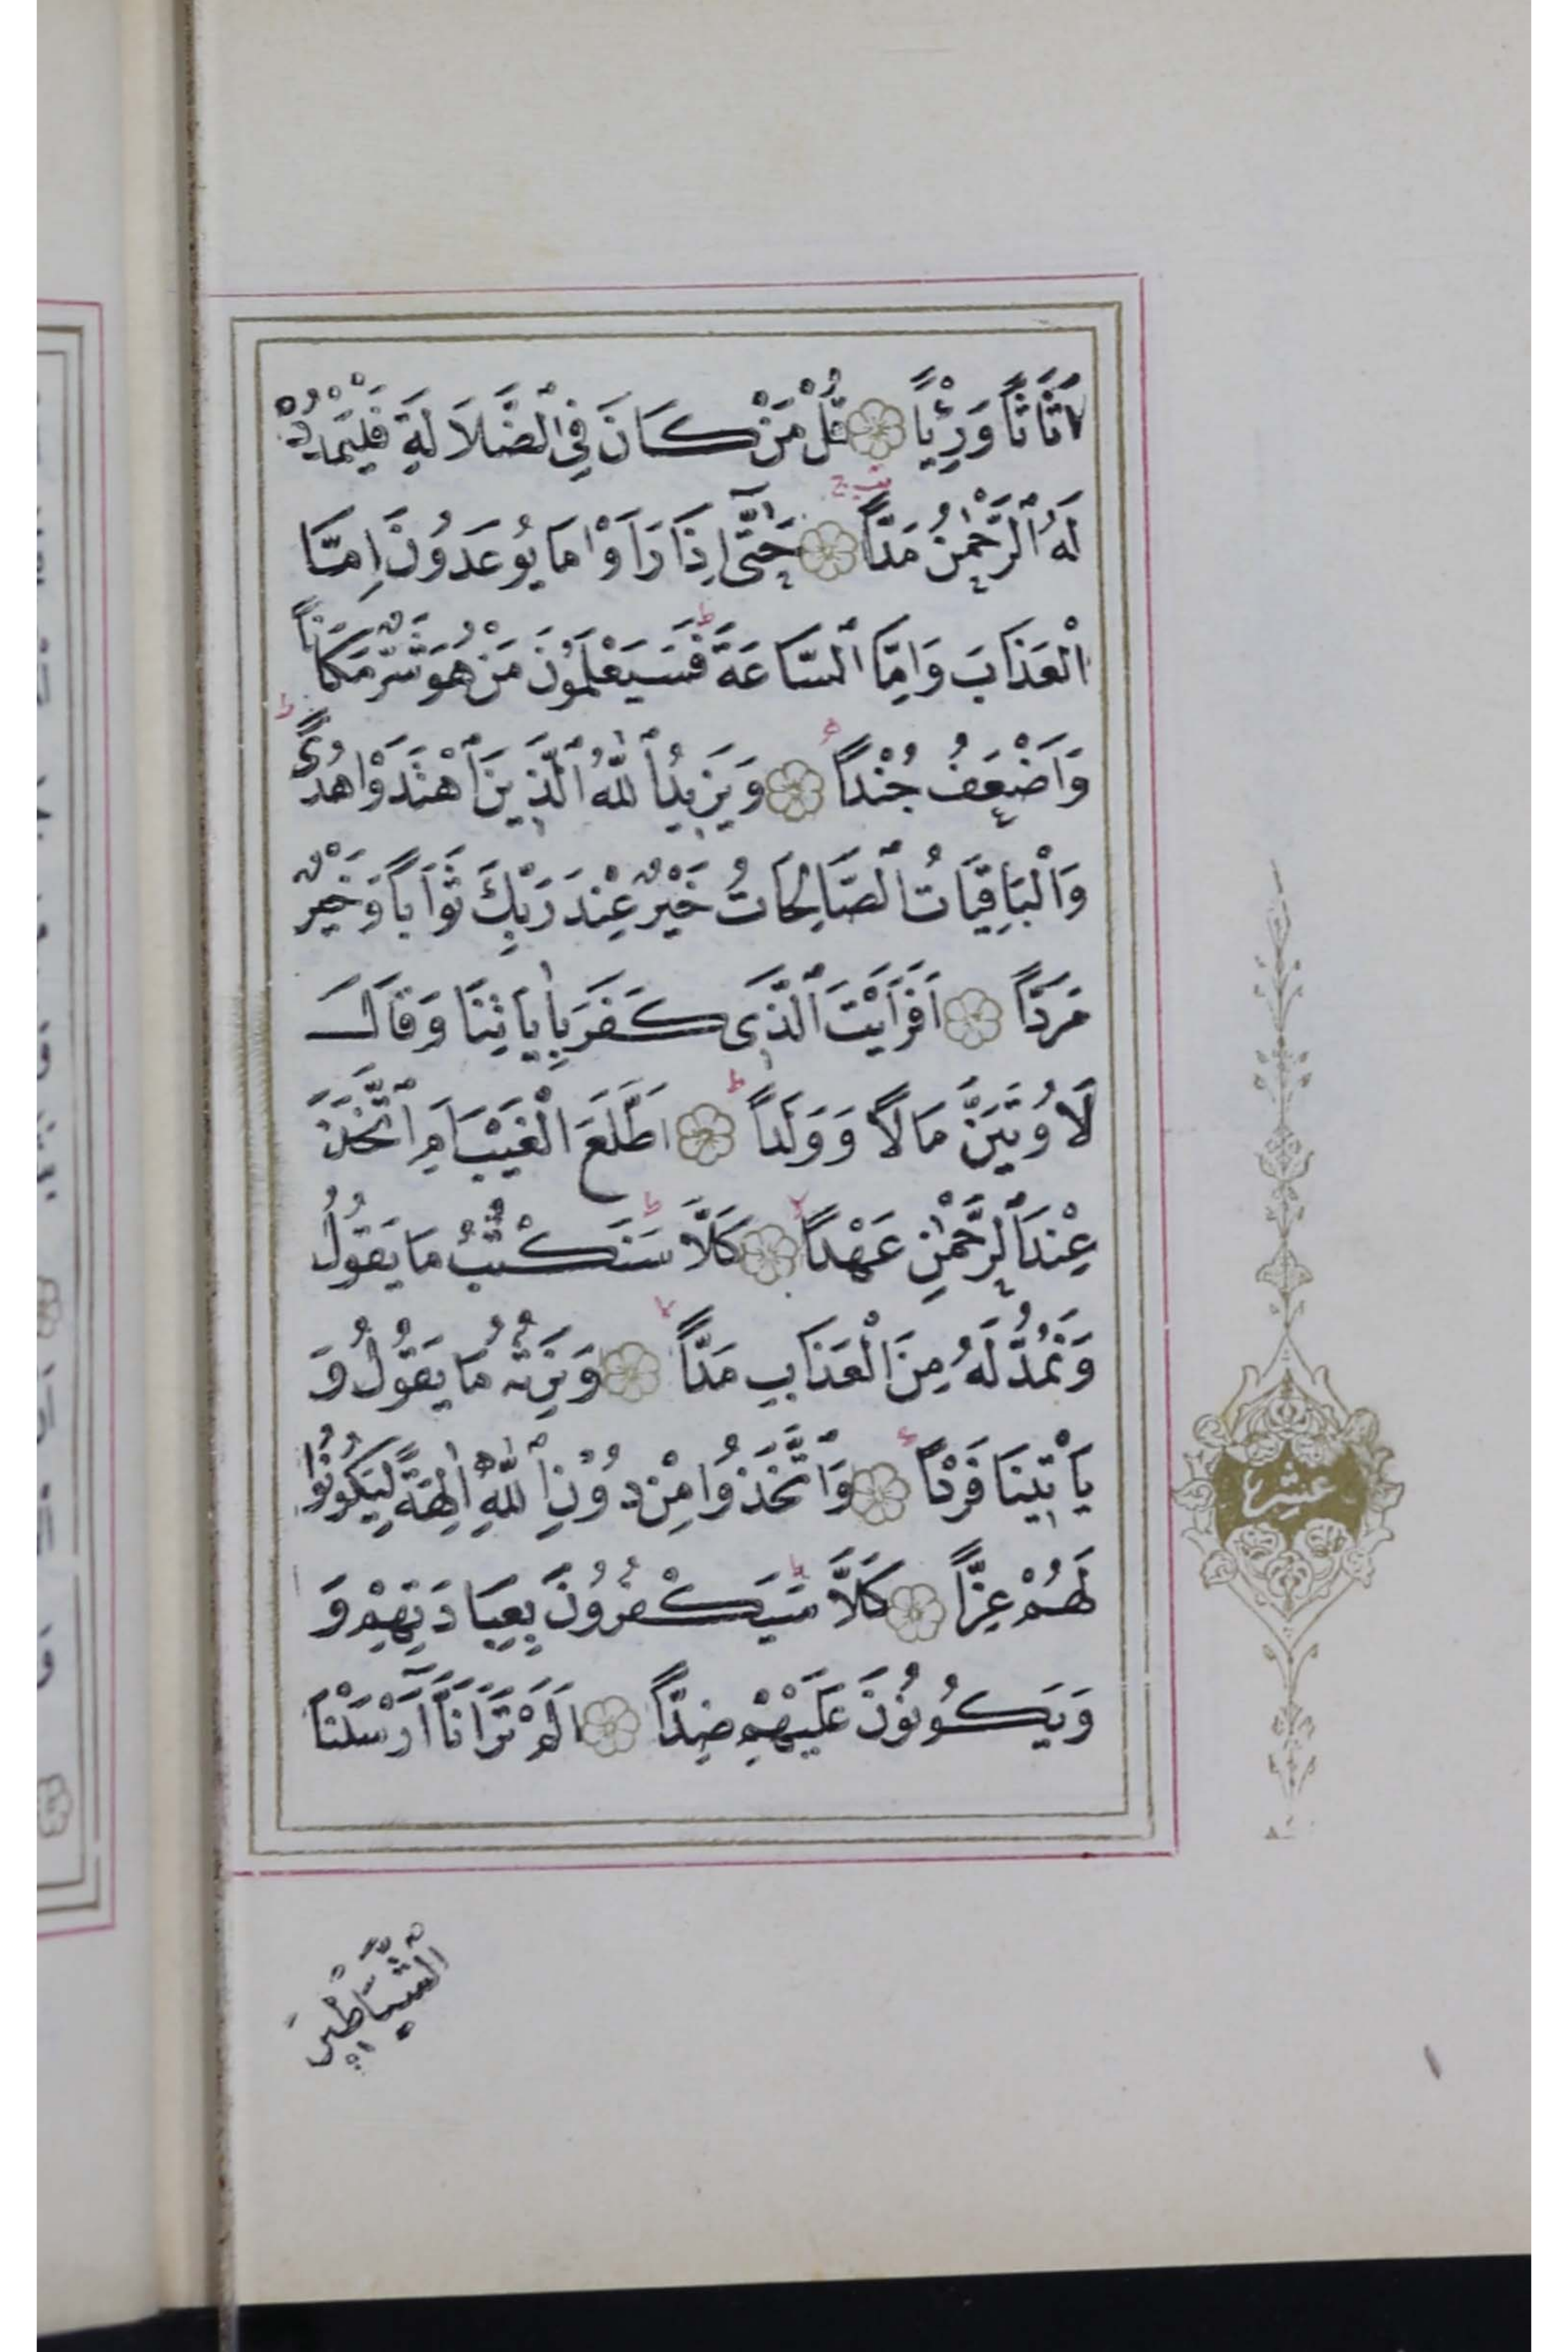 اَثَاثًا وَرِءْيًا قُلْ مَنْ كَانَ فِى ٱلضَّلَالَةِ فَلْيَمْدُدْ
لَهُ ٱلرَّحْمٰنُ مَدًّا حَتّٰٓى اِذَا رَاَوْا مَا يُوعَدُونَ اِمَّا
الْعَذَابَ وَاِمَّا ٱلسَّاعَةَ فَسَيَعْلَمُونَ مَنْ هُوَ شَرٌّ مَكَانًا
وَاَضْعَفُ جُنْدًا وَيَزِيدُ ٱللّٰهُ ٱلَّذِينَ ٱهْتَدَوْا هُدًى
وَالْبَاقِيَاتُ ٱلصَّالِحَاتُ خَيْرٌ عِنْدَ رَبِّكَ ثَوَابًا وَخَيْرٌ
مَرَدًّا اَفَرَاَيْتَ ٱلَّذِى كَفَرَ بِاٰيَاتِنَا وَقَالَ
لَاُوتَيَنَّ مَالًا وَوَلَدًا اَطَّلَعَ الْغَيْبَ اَمِ ٱتَّخَذَ
عِنْدَ ٱلرَّحْمٰنِ عَهْدًا كَلَّا سَنَكْتُبُ مَا يَقُولُ
وَنَمُدُّ لَهُ مِنَ الْعَذَابِ مَدًّا وَنَرِثُهُ مَا يَقُولُ وَ
يَاْتِينَا فَرْدًا وَٱتَّخَذُوا مِنْ دُونِ ٱللّٰهِ اٰلِهَةً لِيَكُونُوا
لَهُمْ عِزًّا كَلَّا سَيَكْفُرُونَ بِعِبَادَتِهِمْ وَ
وَيَكُونُونَ عَلَيْهِمْ ضِدًّا اَلَمْ تَرَ اَنَّٓا اَرْسَلْنَا
عشر
الشَّيَاطِينَ